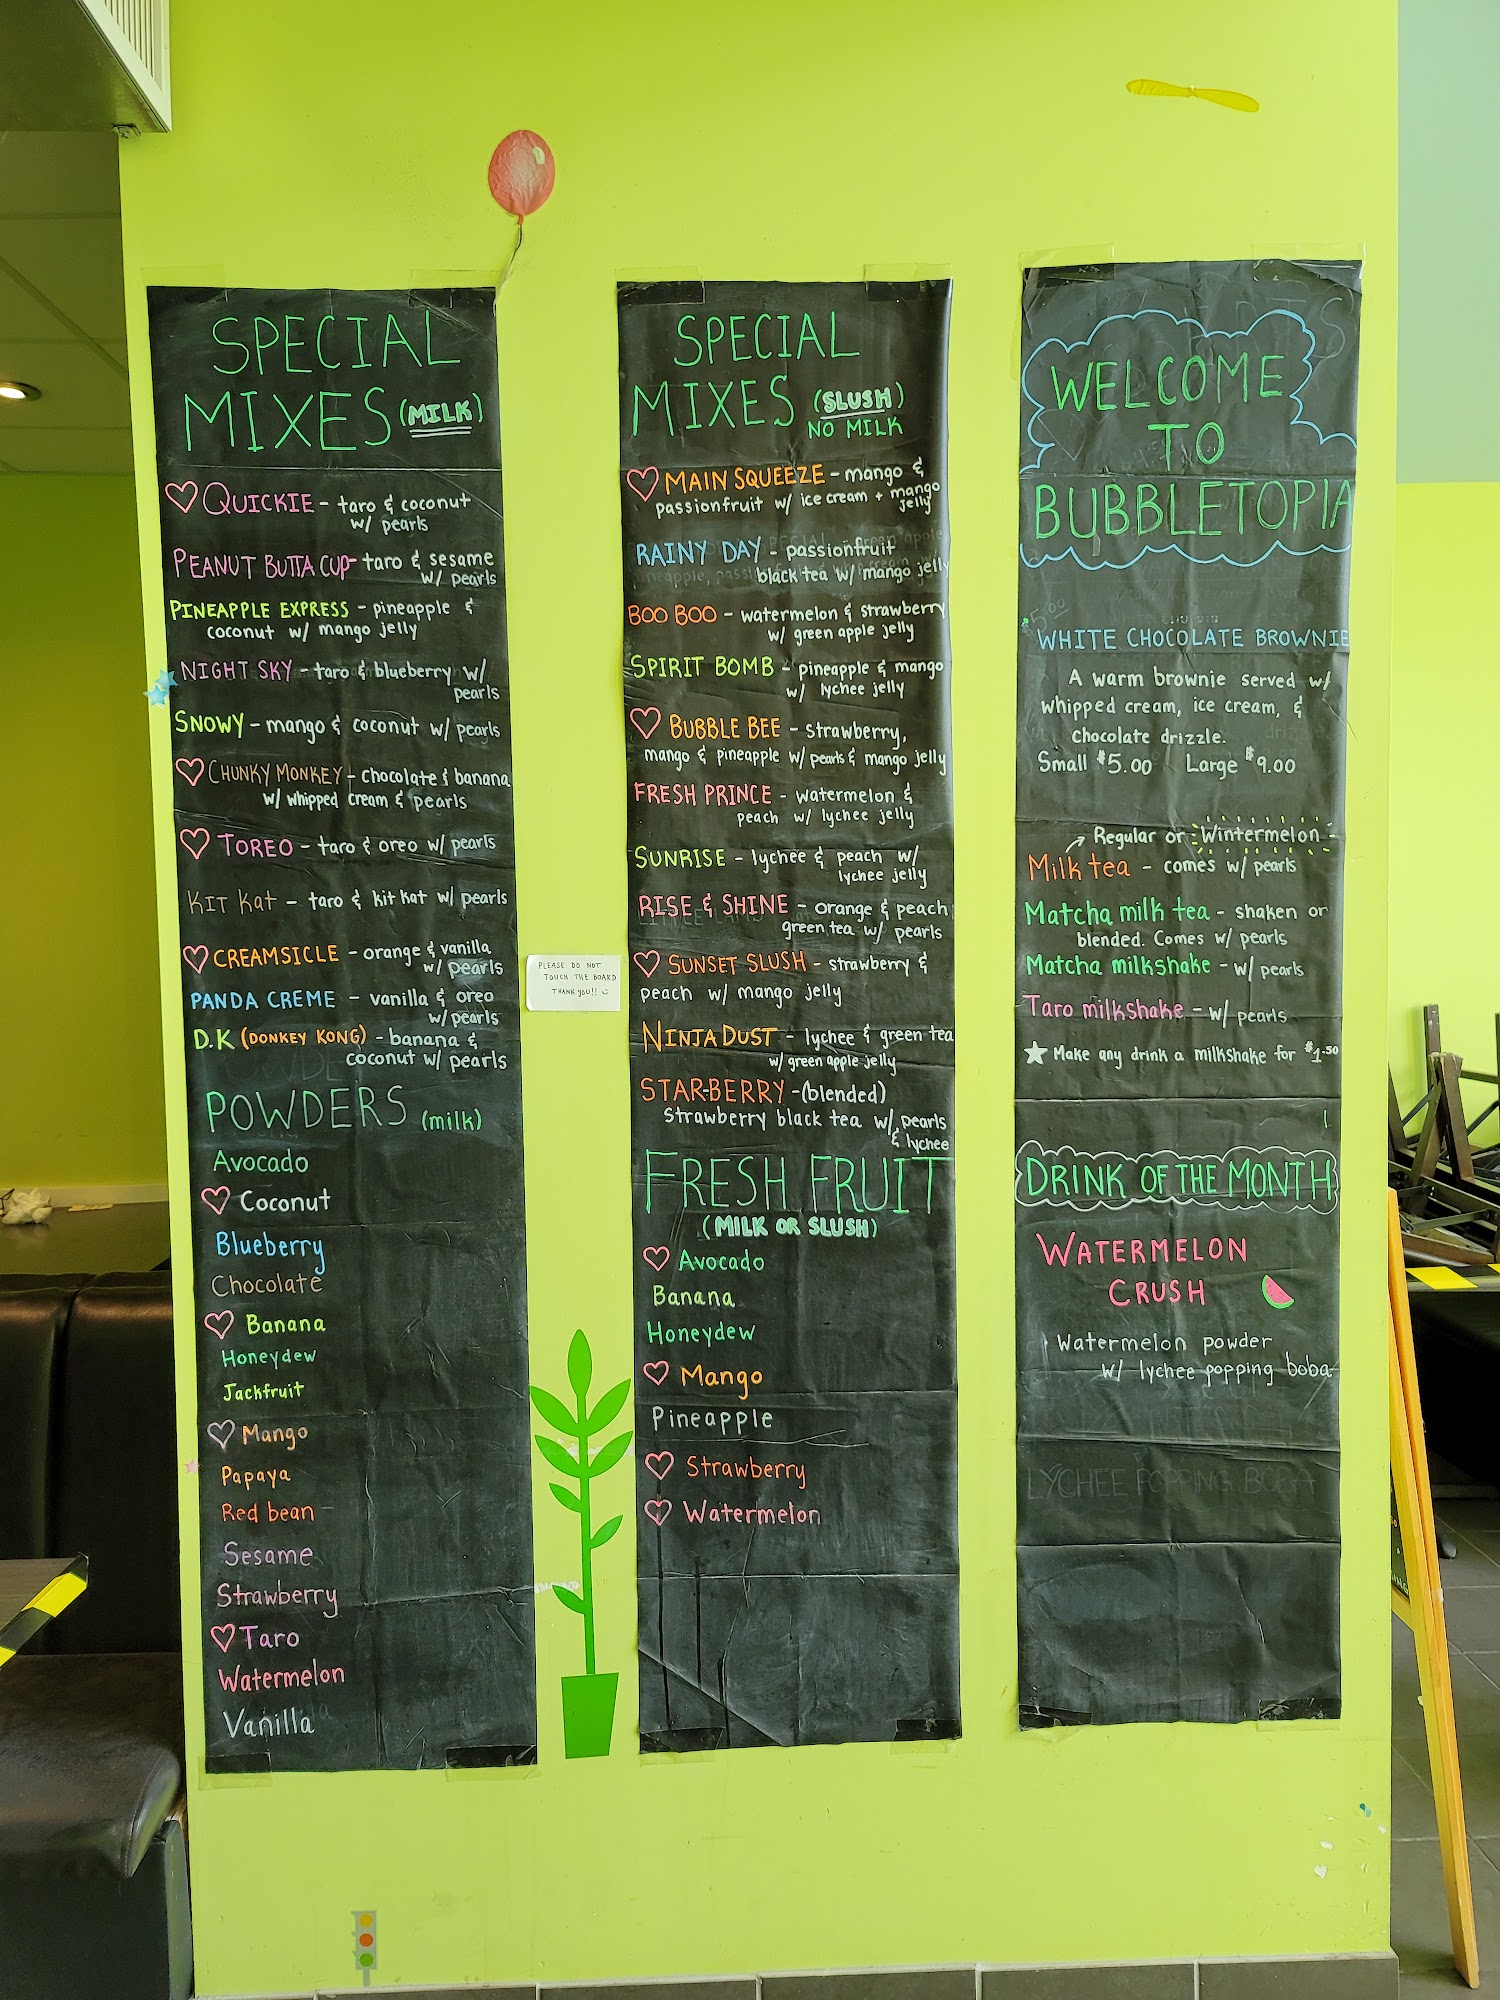 SPECIAL
MIXES (MILK)
QUICKIE - taro & coconut
w/ pearls
PEANUT BUTTA CUP - taro & sesame
w/ pearls
PINEAPPLE EXPRESS - pineapple &
coconut w/ mango jelly
NIGHT SKY - taro & blueberry w/
pearls
SNOWY - mango & coconut w/ pearls
CHUNKY MONKEY - chocolate & banana
w/ whipped cream & pearls
TOREO - taro & oreo w/ pearls
KIT KAT - taro & kit kat w/ pearls
CREAMSICLE - orange & vanilla
w/ pearls
PANDA CREME - vanilla & oreo
w/ pearls
D.K (DONKEY KONG) - banana &
coconut w/ pearls
POWDERS (milk)
Avocado
Coconut
Blueberry
Chocolate
Banana
Honeydew
Jackfruit
Mango
Papaya
Red bean
Sesame
Strawberry
Taro
Watermelon
Vanilla
PLEASE DO NOT
TOUCH THE BOARD
THANK YOU!!
SPECIAL
MIXES (SLUSH)
NO MILK
MAIN SQUEEZE - mango &
passionfruit w/ ice cream + mango
jelly
RAINY DAY - passionfruit
black tea w/ mango jelly
BOO BOO - watermelon & strawberry
w/ green apple jelly
SPIRIT BOMB - pineapple & mango
w/ lychee jelly
BUBBLE BEE - strawberry,
mango & pineapple w/ pearls & mango jelly
FRESH PRINCE - watermelon &
peach w/ lychee jelly
SUNRISE - lychee & peach w/
lychee jelly
RISE & SHINE - orange & peach
green tea w/ pearls
SUNSET SLUSH - strawberry &
peach w/ mango jelly
NINJA DUST - lychee & green tea
w/ green apple jelly
STAR-BERRY - (blended)
Strawberry black tea w/ pearls
& lychee
FRESH FRUIT
(MILK OR SLUSH)
Avocado
Banana
Honeydew
Mango
Pineapple
Strawberry
Watermelon
WELCOME
TO
BUBBLETOPIA
WHITE CHOCOLATE BROWNIE
A warm brownie served w/
whipped cream, ice cream, &
chocolate drizzle.
Small $5.00 Large $9.00
Regular or Wintermelon
Milk tea - comes w/ pearls
Matcha milk tea - shaken or
blended. Comes w/ pearls
Matcha milkshake - w/ pearls
Taro milkshake - w/ pearls
★ Make any drink a milkshake for $1.50
DRINK OF THE MONTH
WATERMELON
CRUSH
Watermelon powder
w/ lychee popping boba
LYCHEE POPPING BOBA